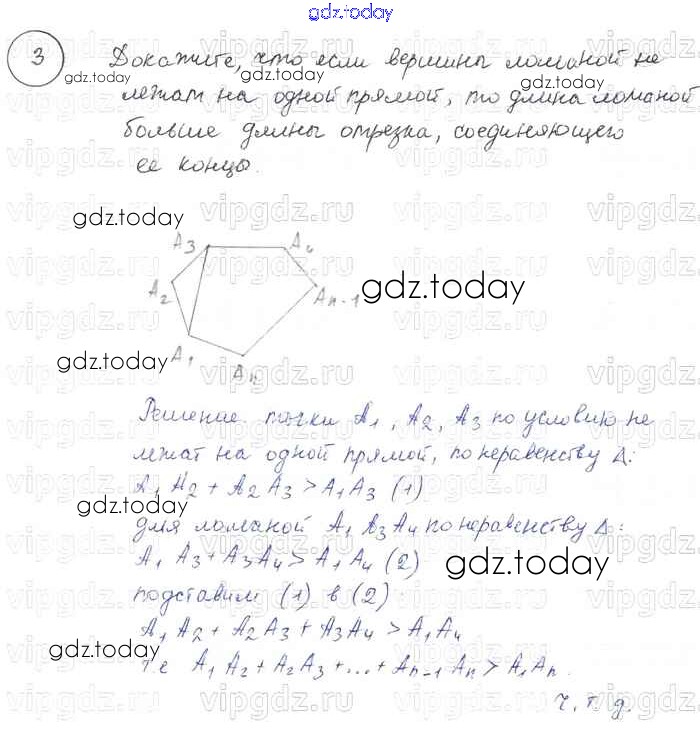 gdz.today
3
Докажите, что если вершины ломаной не
лежат на одной прямой, то длина ломаной
больше длины отрезка, соединяющего
ее концы.
gdz.today
gdz.today
vipgdz.ru
gdz.today
A3
A4
A2
An-1
gdz.today
gdz.today
A1
An
Решение точки A1, A2, A3 по условию не
лежат на одной прямой, по неравенству Δ:
A1 A2 + A2 A3 > A1 A3 (1)
gdz.today
для ломаной A1 A3 A4 по неравенству Δ:
A1 A3 + A3 A4 > A1 A4 (2)
gdz.today
подставим (1) в (2)
A1 A2 + A2 A3 + A3 A4 > A1 A4
gdz.today
т.е A1 A2 + A2 A3 + ... + An-1 An > A1 An.
ч.т.д.